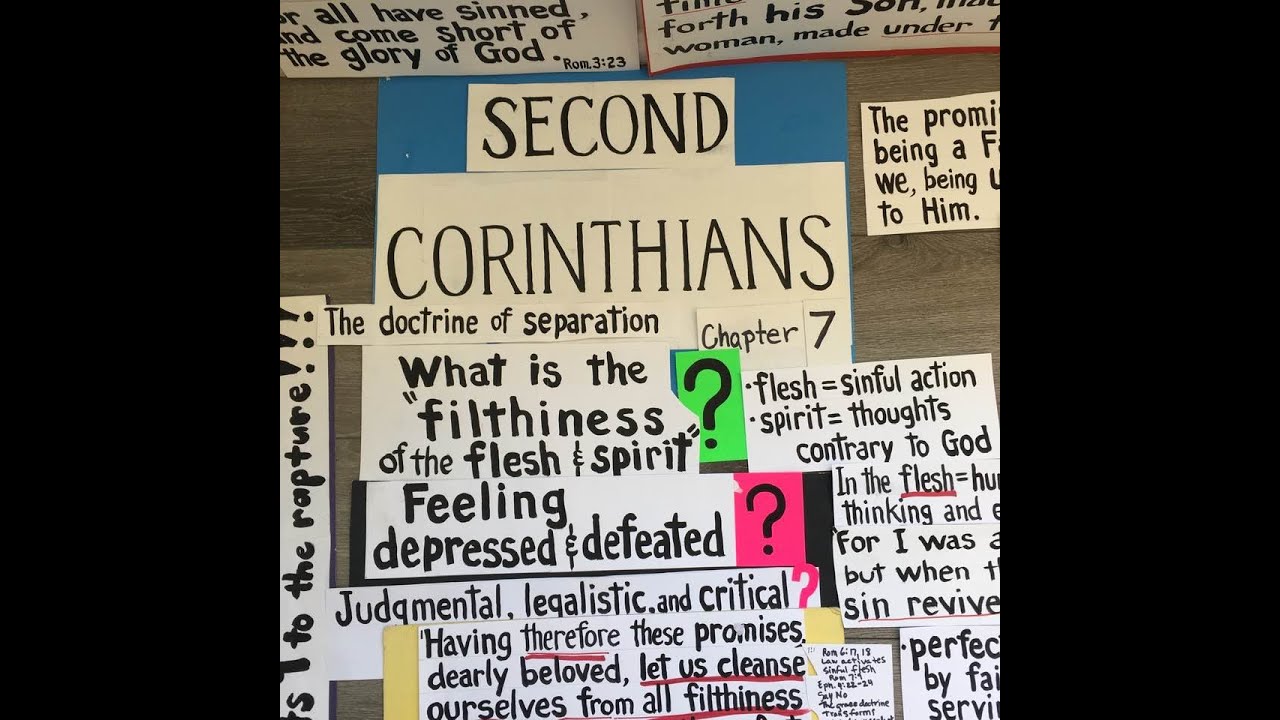 all have sinned,
and come short of
the glory of God. Rom. 3:23
forth his Son,
woman, made under
SECOND
CORINTHIANS
The promi
being a
we, being
to Him.
The doctrine of separation
Chapter 7
What is the
"filthiness
of the flesh & spirit"
?
• flesh = sinful action
• spirit = thoughts
contrary to God
In the flesh =
thinking and
"For I was
but when
sin revive
Feeling
depressed & defeated
?
Judgmental, legalistic, and critical ?
"Having therefore these promises,
dearly beloved, let us cleanse
ourselves from all filthiness
Rom 6:17, 18
Law activates
sinful flesh
Rom 7:9
Eph. 4:22-24
Say No
The grace doctrine
Transforms
• perfec
by fai
servi
to the rapture!!